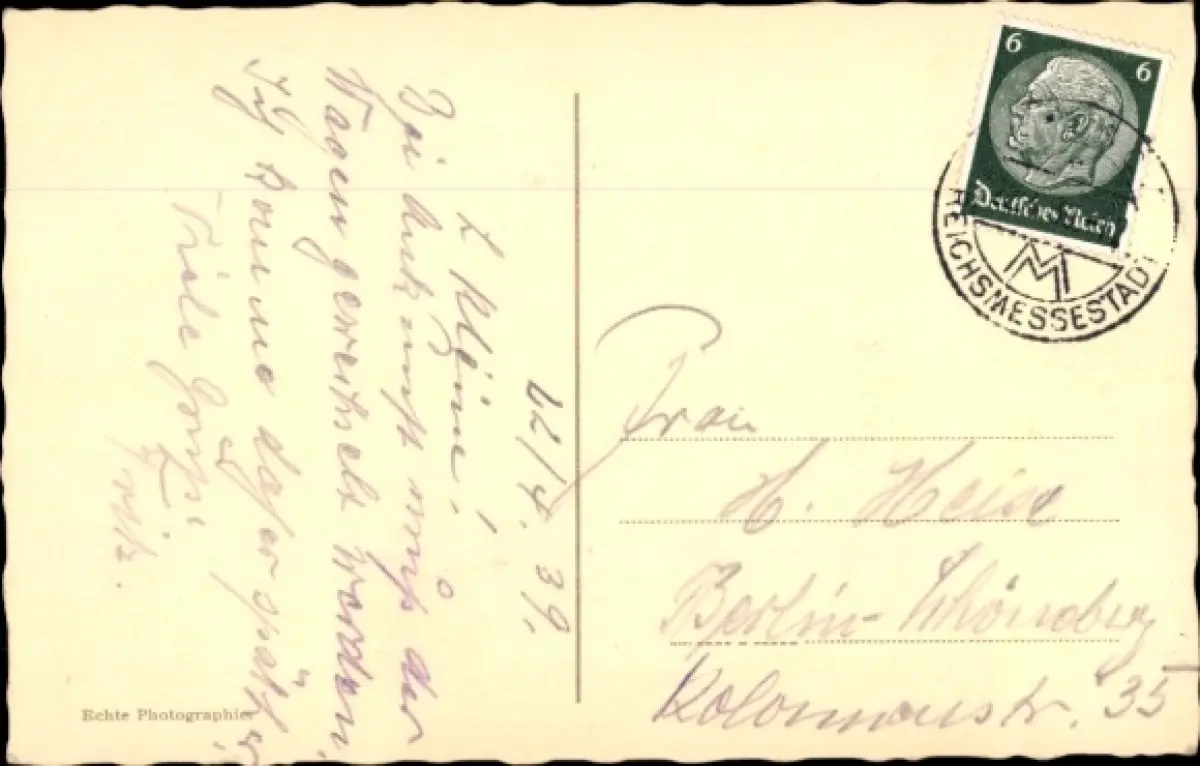 22/4. 39.
L. Kleine!
Bei Ankunft muß der
Wagen gewechselt werden
Ich komme daher später
Viele Grüße
Fritz.
Frau
H. Heise
Berlin-Schöneberg
Kolonnenstr. 35
6 6
Deutsches Reich
REICHSMESSESTADT
M
Echte Photographie